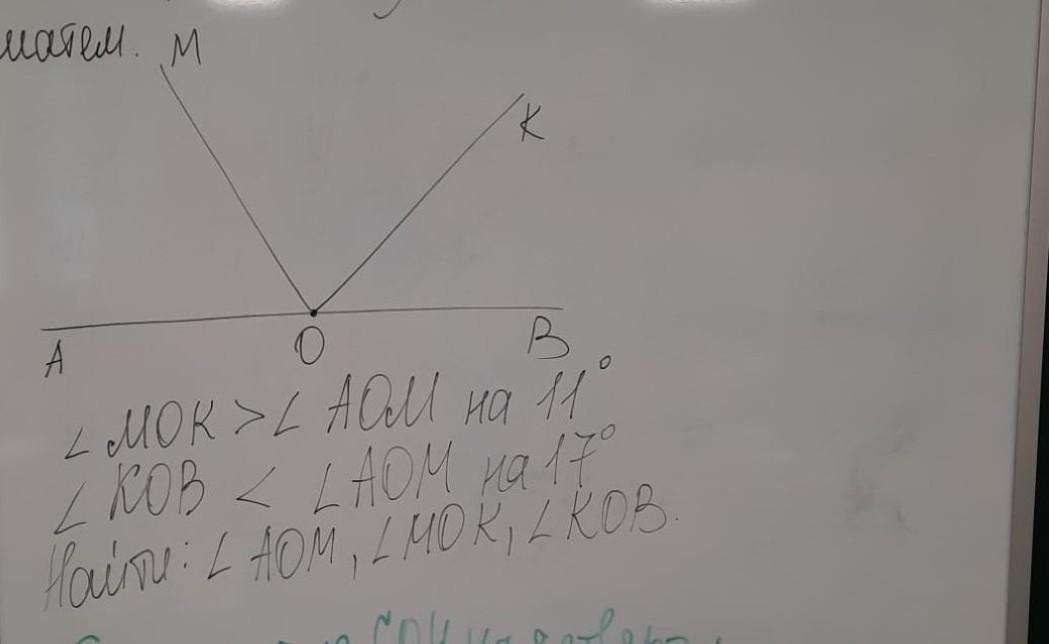 матем. M
K
A O B
∠MOK > ∠AOM на 11°
∠KOB < ∠AOM на 17°
Найти: ∠AOM, ∠MOK, ∠KOB.